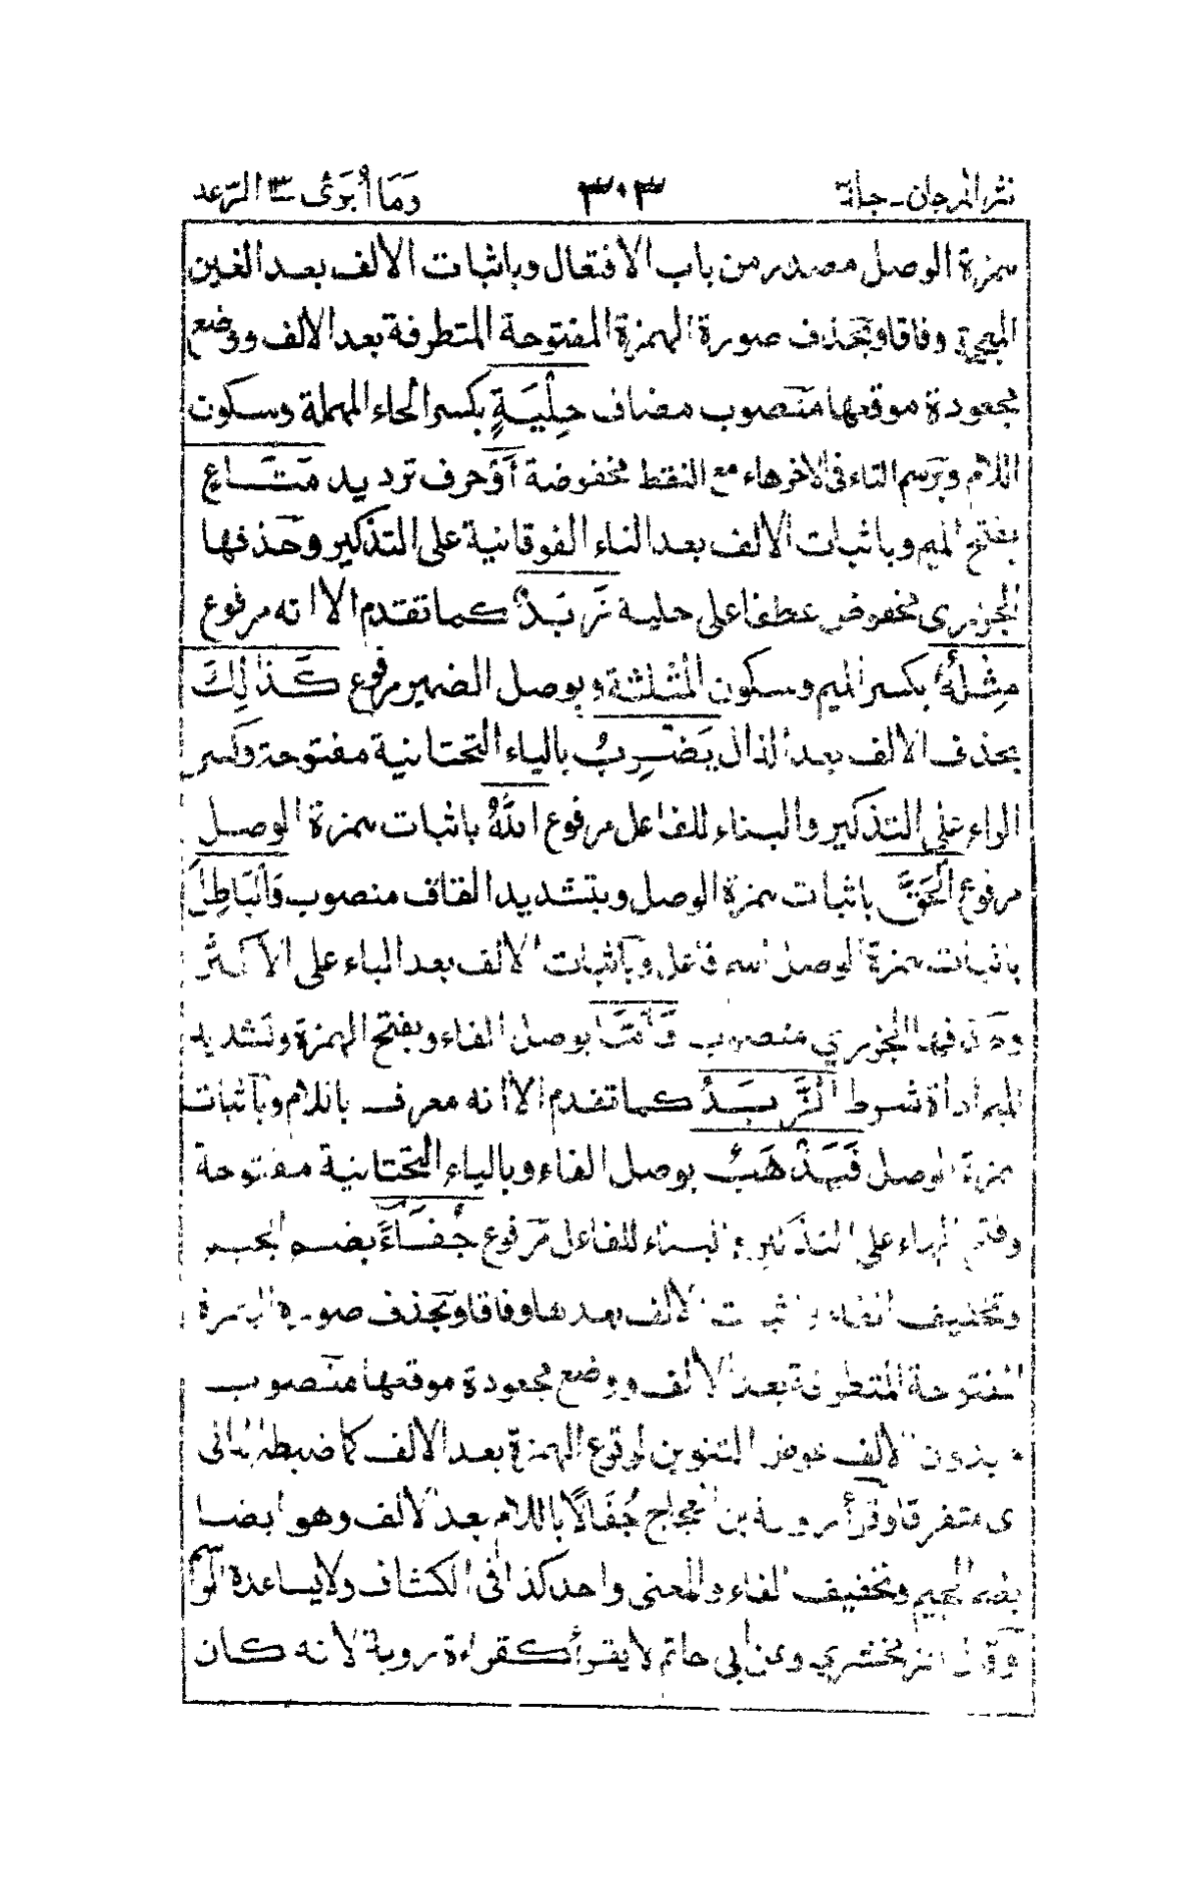 نثر المرجان - جلد ٣ ٣٠٣ وَمَا أُبَرِّئُ ١٣ الرّعد
همزة الوصل مصدر من باب الافتعال وباثبات الالف بعد الغين
المعجمة وفاقا وبحذف صورة الهمزة المفتوحة المتطرفة بعد الالف ووضع
مجعودة موقعها منصوب مضاف حِلْيَةٍ بكسر الحاء المهملة وسكون
اللام وبرسم التاء فى الاخر هاء مع النقط مخفوضة أَوْ حرف ترديد مَتَاعٍ
بفتح الميم وباثبات الالف بعد التاء الفوقانية على التذكير وحذفها
الجزرى مخفوض عطفا على حلية زَبَدٌ كما تقدم الا انه مرفوع
مِثْلُهُ بكسر الميم وسكون المثلثة وبوصل الضمير مرفوع كَذٰلِكَ
بحذف الالف بعد الذال يَضْرِبُ بالياء التحتانية مفتوحة وكسر
الراء على التذكير والبناء للفاعل مرفوع اللّٰهُ باثبات همزة الوصل
مرفوع الْحَقَّ باثبات همزة الوصل وبتشديد القاف منصوب وَالْبَاطِلَ
باثبات همزة الوصل اسم فاعل وباثبات الالف بعد الباء على الاكثر
وحذفها الجزري منصوب فَاَمَّا بوصل الفاء وبفتح الهمزة وتشديد
الميم اداة شرط الزَّبَدُ كما تقدم الا انه معرف باللام وباثبات
همزة الوصل فَيَذْهَبُ بوصل الفاء وبالياء التحتانية مفتوحة
وفتح الهاء على التذكير والبناء للفاعل مرفوع جُفَاءً بضم الجيم
وتخفيف الفاء واثبات الالف بعدها وفاقا وبحذف صورة الهمزة
المفتوحة المتطرفة بعد الالف ووضع مجعودة موقعها منصوب
بدون الالف عوض التنوين لوقوع الهمزة بعد الالف كما ضبطه الدانى
متفرقا وقرأ روبة بن العجاج جُفَالًا باللام بعد الالف وهو ايضا
بضم الجيم وتخفيف الفاء والمعنى واحد كذا فى الكشاف ولا يساعده الرسم
وقال الزمخشري وعن ابي حاتم لا يقرأ كقراءة روبة لانه كان